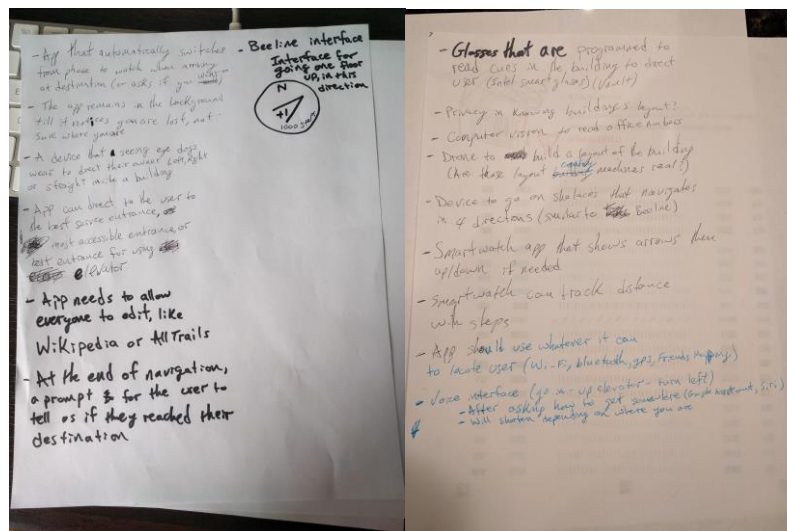 - App that automatically switches
from phone to watch when arriving
at destination (or asks if you
- The app remains in the background
till it notices you are lost, not
sure where you are
- A device that seeing eye dogs
wear to direct their owner left, right
or straight inside a building
- App can direct to the user to
the best service entrance,
most accessible entrance, or
best entrance for using
elevator
- App needs to allow
everyone to edit, like
Wikipedia or AllTrails
- At the end of navigation,
a prompt for the user to
tell us if they reached their
destination
- Beeline interface
Interface for
going one floor
up, in this
direction
N
+1
1000 steps
- Glasses that are programmed to
read cues in the building to direct
user (Intel smart glasses) (Vault)
- Privacy in knowing building's layout?
- Computer vision to read office numbers
- Drone to build a layout of the building
(Are those layout machines real?)
- Device to go on shoelaces that navigates
in 4 directions (similar to Beeline)
- Smartwatch app that shows arrows then
up/down if needed
- Smartwatch can track distance
with steps
- App should use whatever it can
to locate user (Wi-Fi, bluetooth, gps, Friends Mapping)
- Voice interface (go in - up elevator - turn left)
- After asking how to get somewhere (Google Assistant, Siri)
- Will shorten depending on where you are